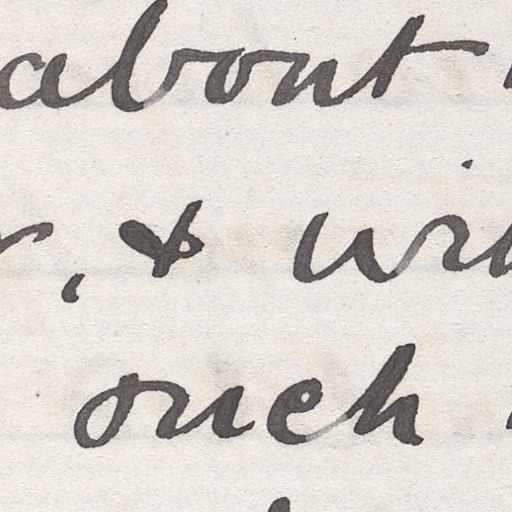 about
, & wi
ouch